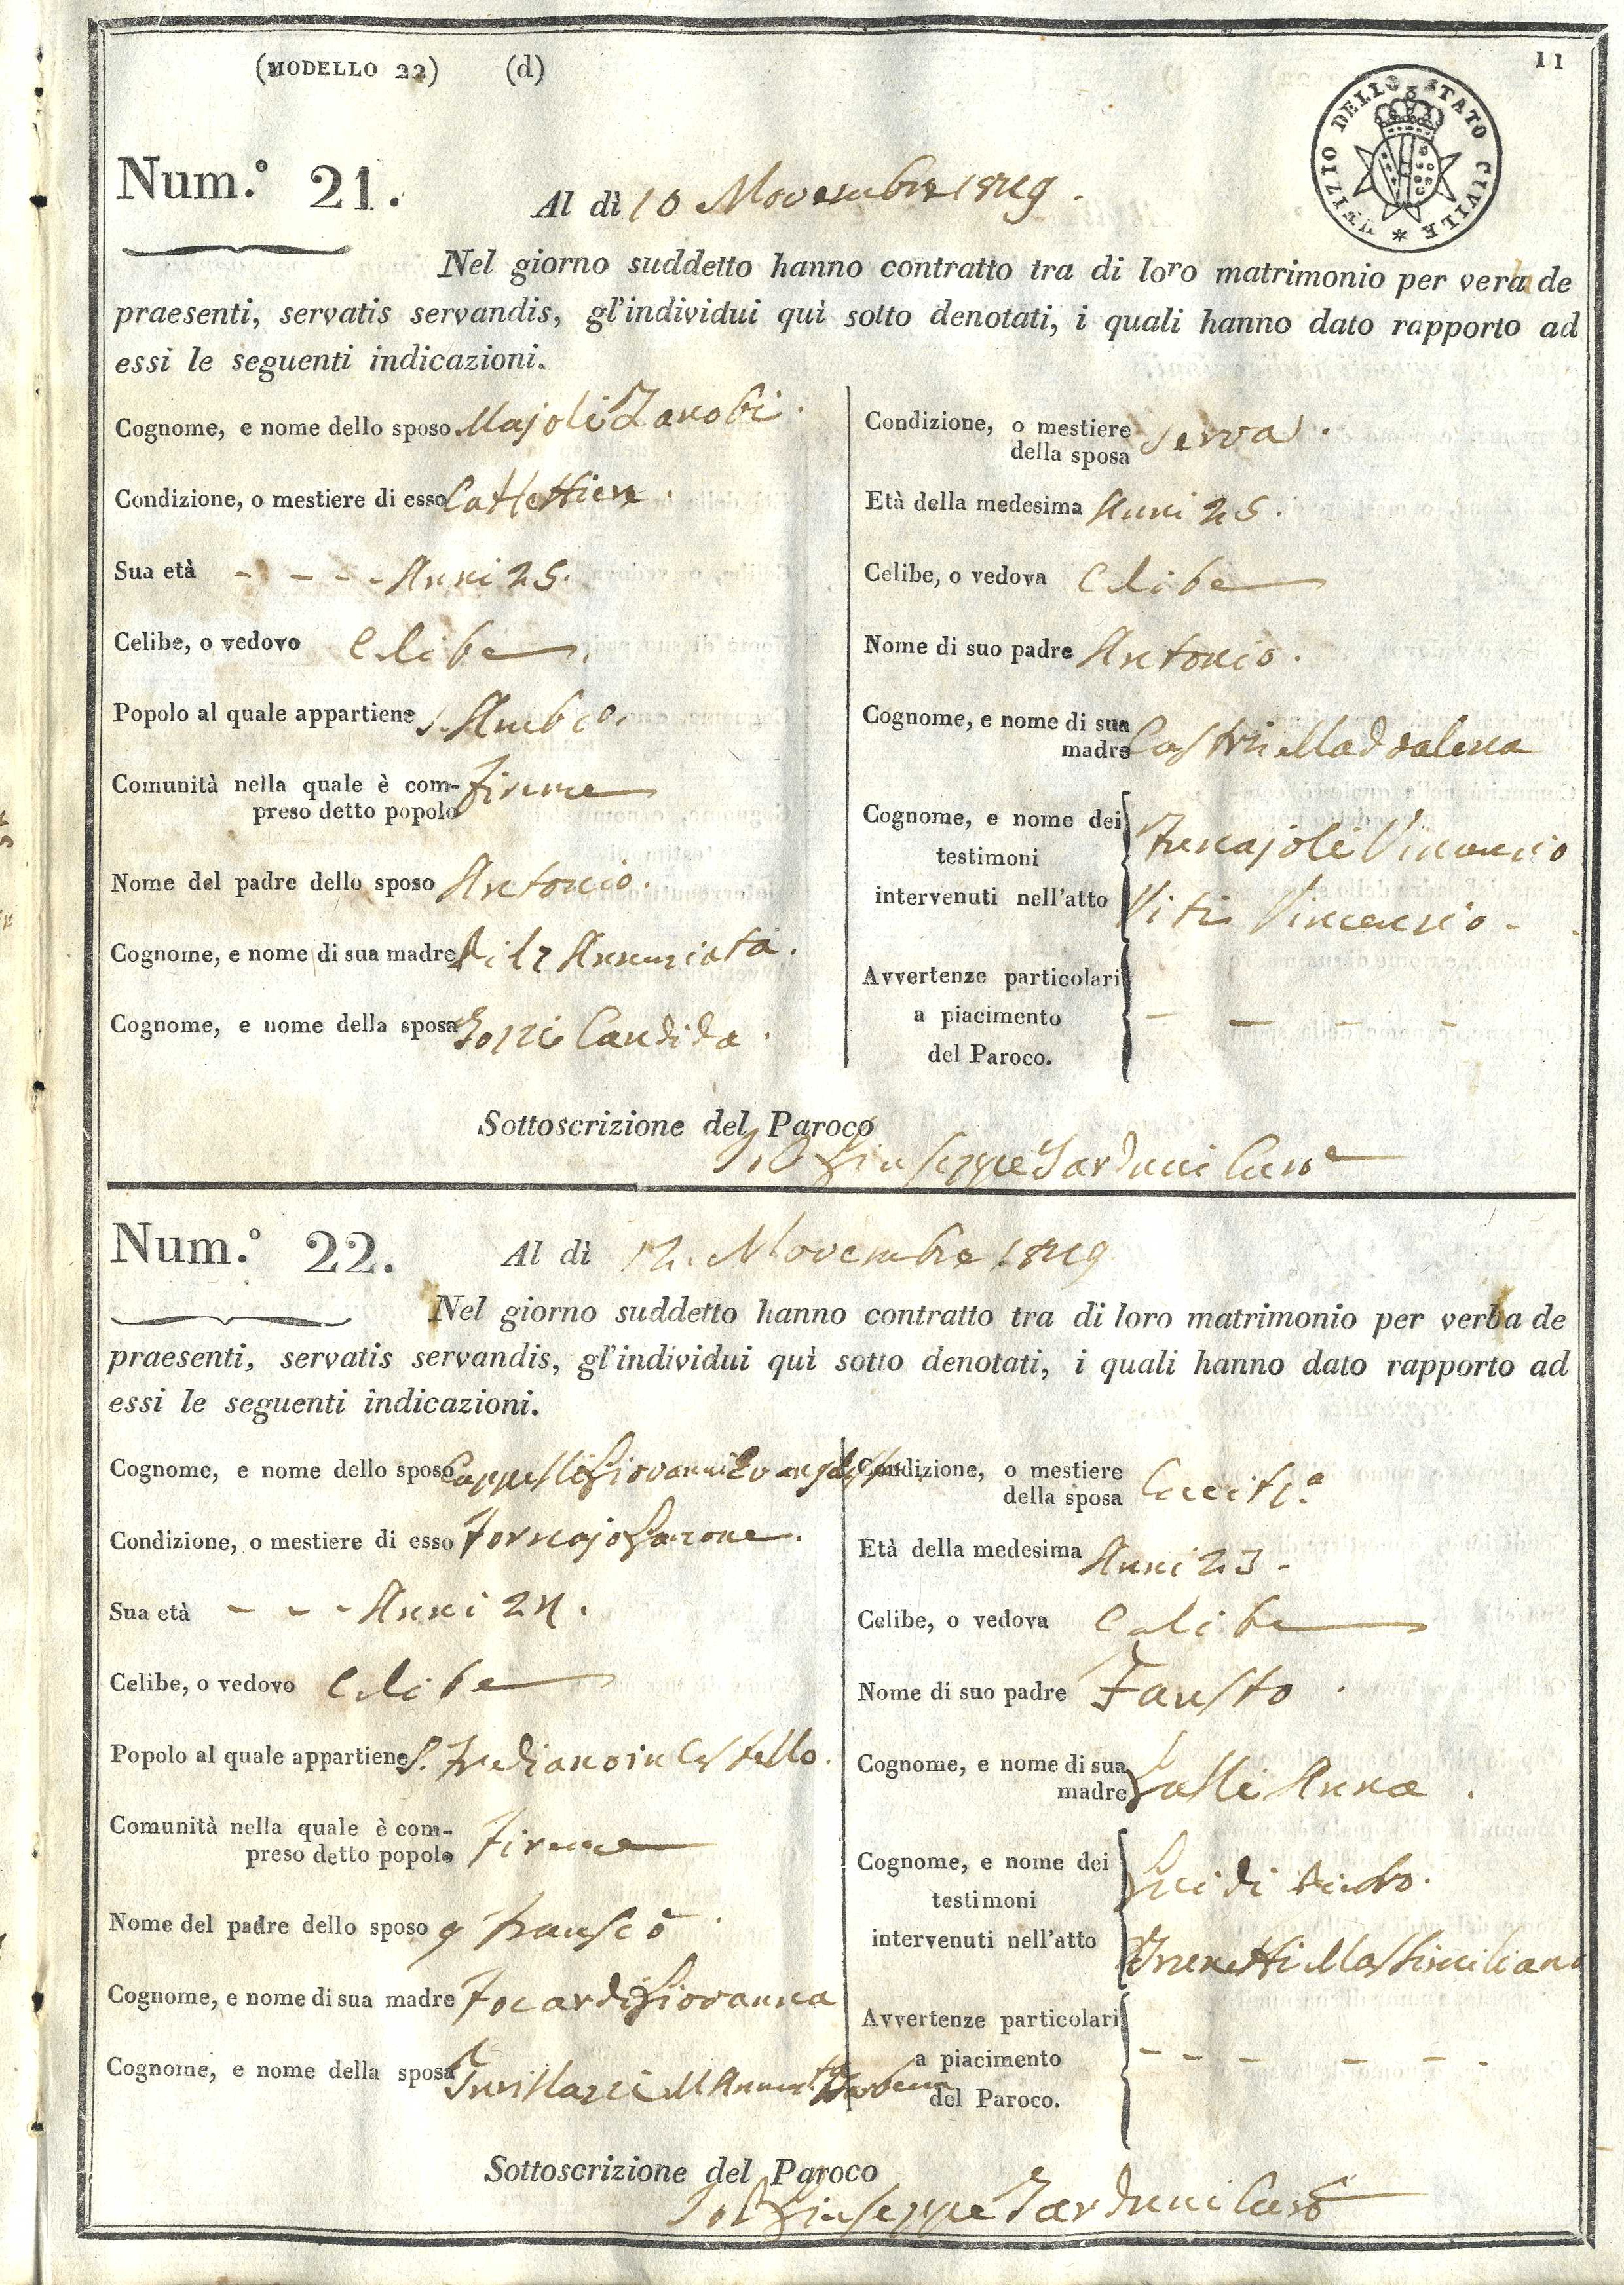 (MODELLO 22) (d) 11
UFIZIO DELLO STATO CIVILE *
Num.° 21. Al dì 10 Novembre 1849.
Nel giorno suddetto hanno contratto tra di loro matrimonio per verba de
praesenti, servatis servandis, gl'individui quì sotto denotati, i quali hanno dato rapporto ad
essi le seguenti indicazioni.
Cognome, e nome dello sposo Majoli Zanobi.
Condizione, o mestiere di esso Caffettiere.
Sua età - - - - Anni 25.
Celibe, o vedovo Celibe
Popolo al quale appartiene S. Amb.o
Comunità nella quale è com-
preso detto popolo Firenze
Nome del padre dello sposo Antonio.
Cognome, e nome di sua madre Annunziata.
Cognome, e nome della sposa Candida.
Condizione, o mestiere
della sposa Serva.
Età della medesima Anni 25.
Celibe, o vedova Celibe
Nome di suo padre Antonio.
Cognome, e nome di sua
madre Castri Maddalena
Cognome, e nome dei
testimoni
intervenuti nell'atto
Vincenzio
Viti Vincenzio -
Avvertenze particolari
a piacimento
del Paroco.
- - - -
Sottoscrizione del Paroco
Giuseppe Tarduci
Num.° 22. Al dì 12. Novembre 1849
Nel giorno suddetto hanno contratto tra di loro matrimonio per verba de
praesenti, servatis servandis, gl'individui quì sotto denotati, i quali hanno dato rapporto ad
essi le seguenti indicazioni.
Cognome, e nome dello sposo Cappelli Giovanni Evangelista
Condizione, o mestiere di esso Fornajo Garzone.
Sua età - - - Anni 24.
Celibe, o vedovo Celibe
Popolo al quale appartiene S. Frediano in Cestello.
Comunità nella quale è com-
preso detto popolo Firenze
Nome del padre dello sposo q Franscō
Cognome, e nome di sua madre Focardi Giovanna
Cognome, e nome della sposa
Condizione, o mestiere
della sposa Cucitr.a
Età della medesima Anni 23 -
Celibe, o vedova Celibe
Nome di suo padre Fausto.
Cognome, e nome di sua
madre Galli Anna.
Cognome, e nome dei
testimoni
intervenuti nell'atto
Brunetti Massimiliano
Avvertenze particolari
a piacimento
del Paroco.
- - - - - -
Sottoscrizione del Paroco
Giuseppe Tarduci